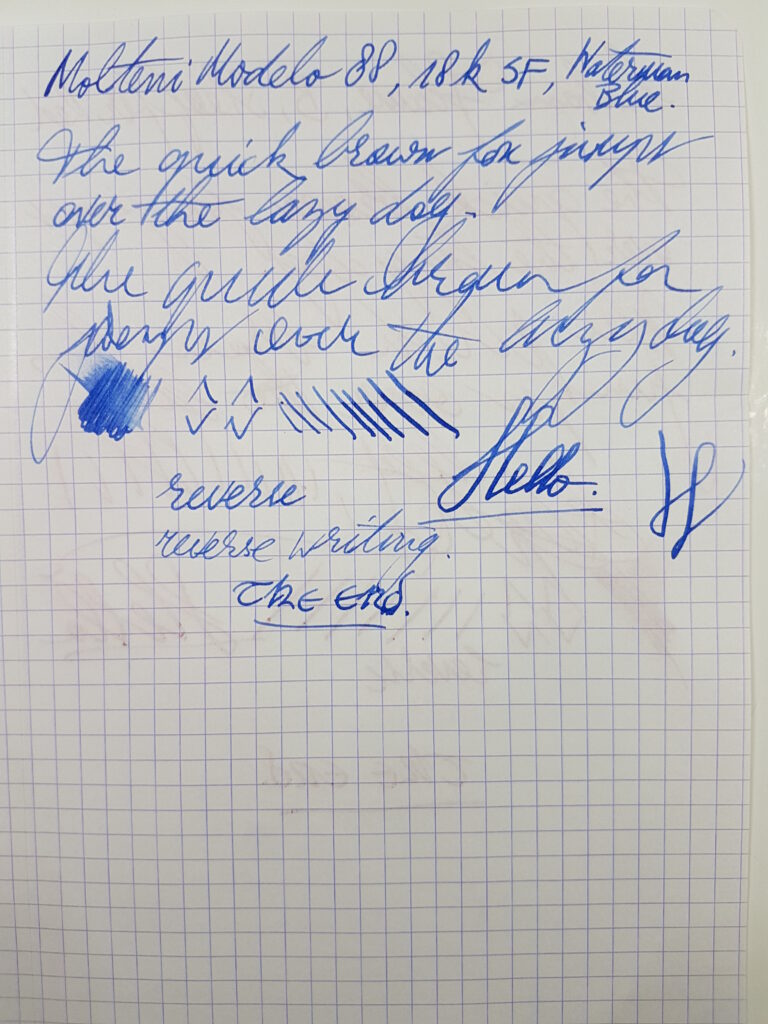 Molteni Modelo 88, 18k SF, Waterman
Blue.
The quick brown fox jumps
over the lazy dog.
The quick brown fox
jumps over the lazy dog.
Hello.
H
reverse
reverse writing.
The End.
The end.